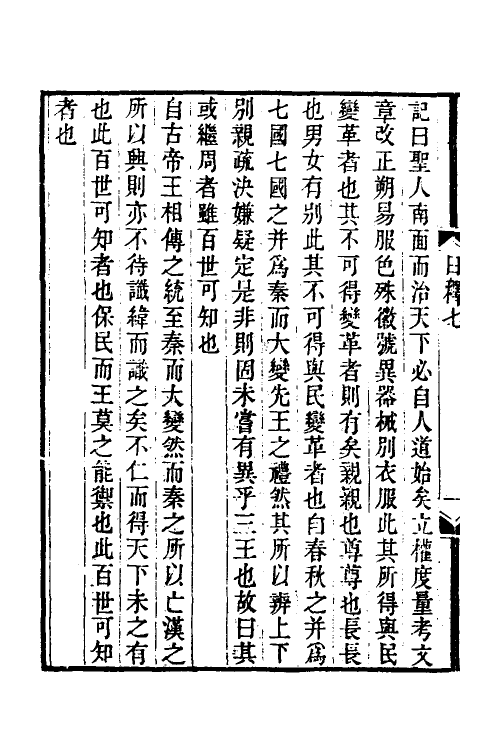 記曰聖人南面而治天下必自人道始矣立權度量考文
章改正朔易服色殊徽號異器械別衣服此其所得與民
變革者也其不可得變革者則有矣親親也尊尊也長長
也男女有別此其不可得與民變革者也自春秋之并爲
七國七國之并爲秦而大變先王之禮然其所以辨上下
別親疏決嫌疑定是非則固未嘗有異乎三王也故曰其
或繼周者雖百世可知也
自古帝王相傳之統至秦而大變然而秦之所以亡漢之
所以興則亦不待讖緯而識之矣不仁而得天下未之有
也此百世可知者也保民而王莫之能禦也此百世可知
者也
日釋七